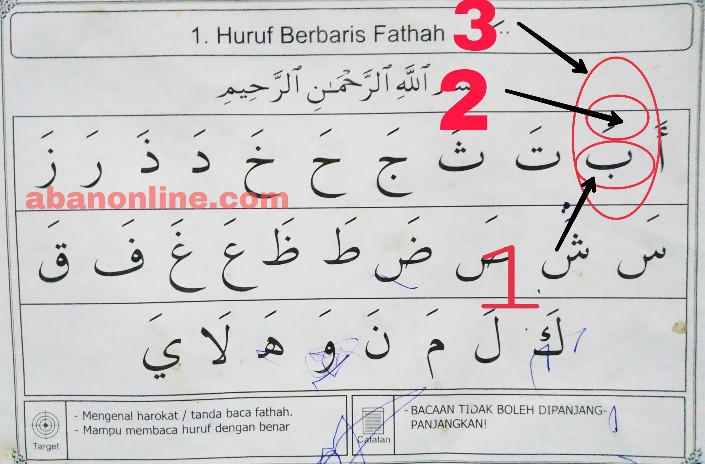 1. Huruf Berbaris Fathah
3
2
بِسْمِ ٱللَّهِ ٱلرَّحْمَـٰنِ ٱلرَّحِيمِ
أَ بَ تَ ثَ جَ حَ خَ دَ ذَ رَ زَ
abanonline.com
سَ شَ صَ ضَ طَ ظَ عَ غَ فَ قَ
1
كَ لَ مَ نَ وَ هَ لَا يَ
Target
- Mengenal harokat / tanda baca fathah.
- Mampu membaca huruf dengan benar
Catatan
- BACAAN TIDAK BOLEH DIPANJANG-
PANJANGKAN!